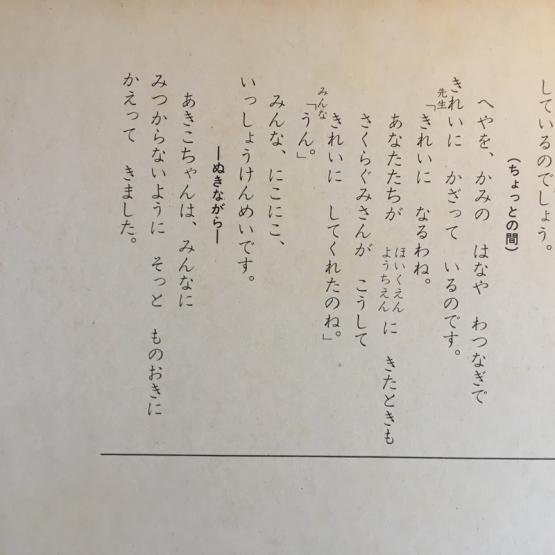 しているのでしょう。
(ちょっとの間)
へやを、かみの はなや わつなぎで
きれいに かざって いるのです。
先生
「きれいに なるわね。
あなたたちが ほいくえん ようちえん に きたときも
さくらぐみさんが こうして
きれいに してくれたのね。」
みんな
「うん」。
みんな、にこにこ、
いっしょうけんめいです。
―ぬきながら―
あきこちゃんは、みんなに
みつからないように そっと ものおきに
かえって きました。